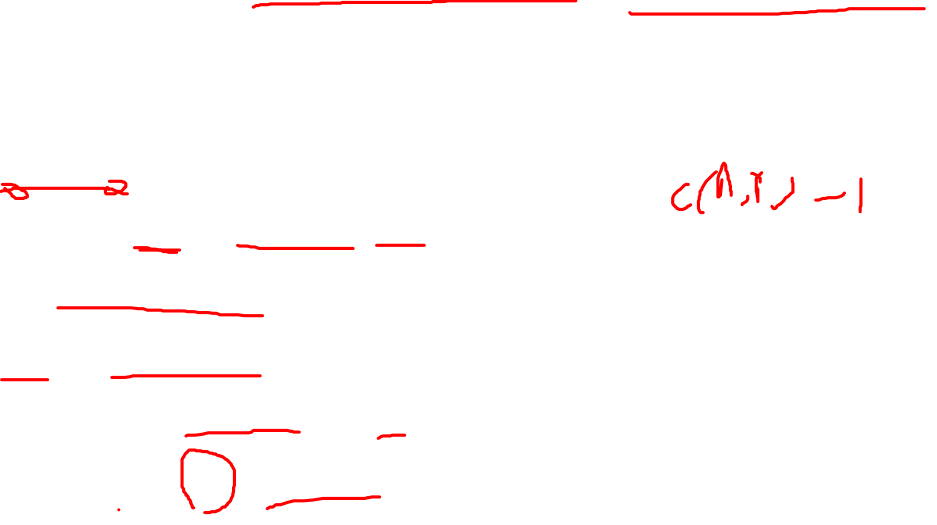 c(n,r) - 1